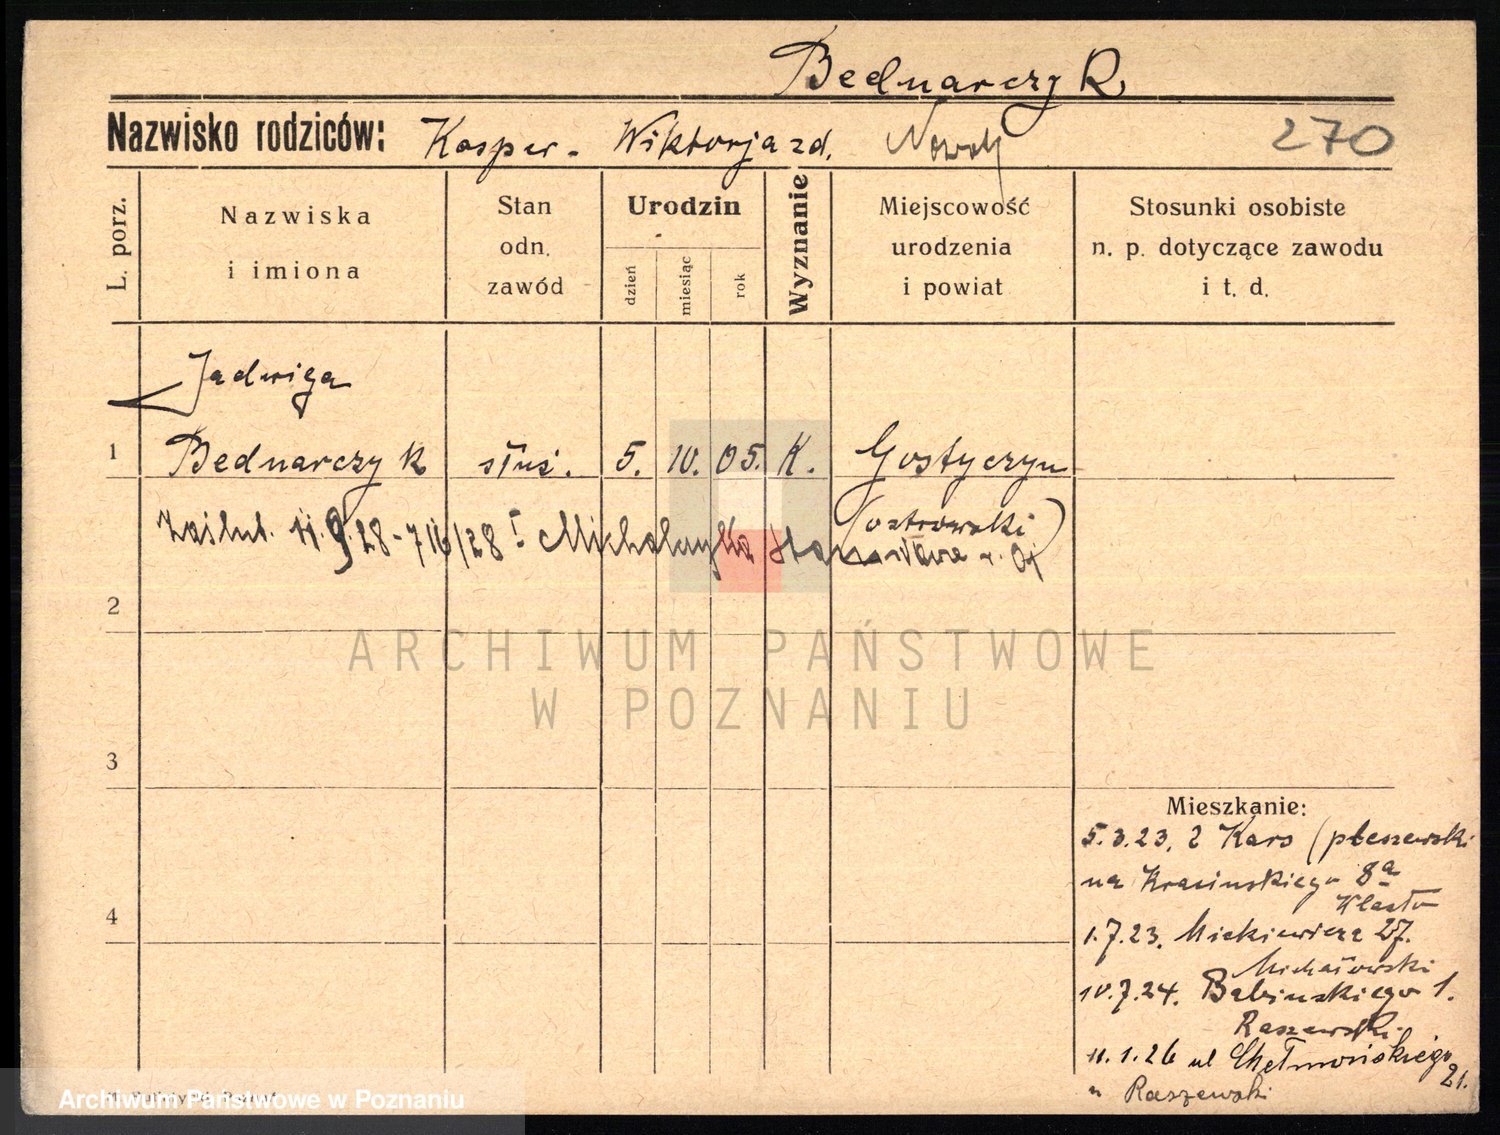 Bednarczyk
Nazwisko rodziców: Kasper - Wiktorja zd. Nowak 270
L. porz.
Nazwiska
i imiona
Stan
odn.
zawód
Urodzin
dzień
miesiąc
rok
Wyznanie
Miejscowość
urodzenia
i powiat
Stosunki osobiste
n. p. dotyczące zawodu
i t. d.
Jadwiga
1 Bednarczyk służ. 5. 10. 05. K. Gostyczyn
(ostrowski)
11.9.28 - 716/28 I
2
ARCHIWUM PAŃSTWOWE
W POZNANIU
3
Mieszkanie:
5.3.23. z Kars (pleszewski
na Krasińskiego 8a
4
1.7.23. Mickiewicza 27.
Michałowski
10.7.24. Babińskiego 1.
Raszewski
11.1.26 ul Chełmońskiego
21.
u Raszewski
Archiwum Państwowe w Poznaniu